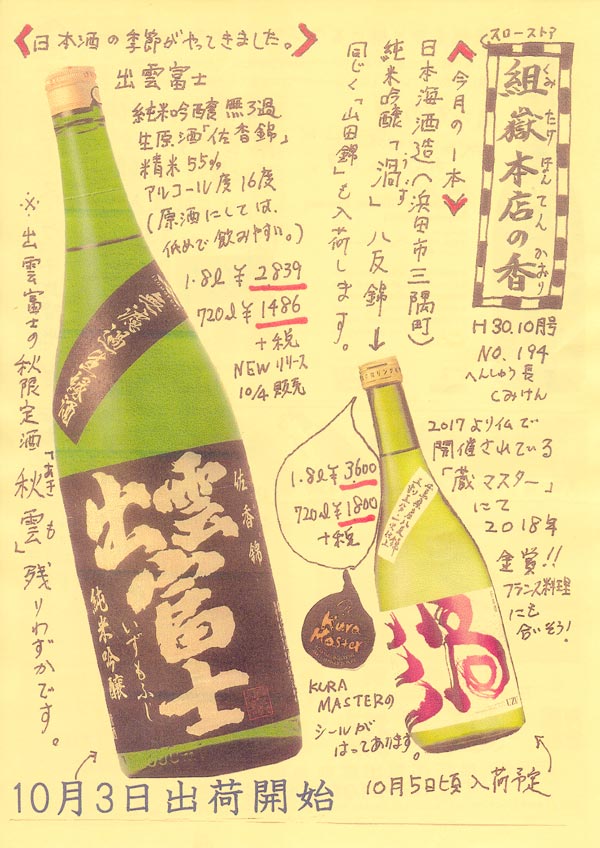 日本酒の季節がやってきました。
出雲富士
純米吟醸 無ろ過
生原酒「佐香錦」
精米55%
アルコール度16度
(原酒にしては、
低めで飲みやすい。)
1.8ℓ ¥2839
720ℓ ¥1486
+税
NEWリリース
10/4販売
※出雲富士の秋限定酒「秋雲」も残りわずかです。
あき
スローストア
組嶽本店の香
くみたけほんてんかおり
H30.10月号
NO.194
へんしゅう長
くみけん
<今月の1本>
日本海酒造(浜田市三隅町)
純米吟醸「渦」八反錦↓
うず
同じく「山田錦」も入荷します。
2017より仏で
開催されている
「蔵マスター」
にて
2018年
金賞!!
フランス料理
にも
合いそう!
1.8ℓ ¥3600
720ℓ ¥1800
+税
無濾過生原酒
佐香錦
出雲富士
いずもふじ
純米吟醸
Kura
Master
渦
UZU
KURA
MASTERの
シールが
はってあります。
10月3日出荷開始
10月5日頃入荷予定